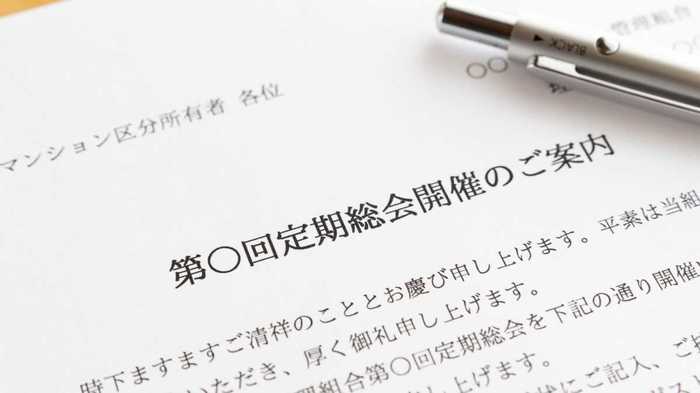 管理組合
〇〇
BLACK
マンション区分所有者 各位
第〇回定期総会開催のご案内
時下ますますご清祥のこととお慶び申し上げます。平素は当組
いただき、厚く御礼申し上げます。
理組合第〇回定期総会を下記の通り開催
申し上げます。
状にご記入、